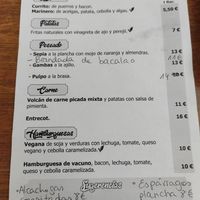 Currito: de puerros y bacon.
Marinero: de acelgas, patata, cebolla y algas. 5,50 €
Patatas
Fritas naturales con vinagreta de ajo y perejil. 7 €
Pescado
- Sepia a la plancha con mojo de naranja y almendras. 13 €
- Brandada de bacalao 11 €
- Gambas a la ajillo. 13 €
- Pulpo a la brasa.
Carne
Volcán de carne picada mixta y patatas con salsa de pimienta. 11 €
Entrecot. 16 €
Hamburguesas
Vegana de soja y verduras con lechuga, tomate, queso vegano y cebolla caramelizada. 10 €
Hamburguesa de vacuno, bacon, lechuga, tomate, queso y cebolla caramelizada. 10 €
Sugerencias
- Alcachofas
- Espárragos
plancha 8 €